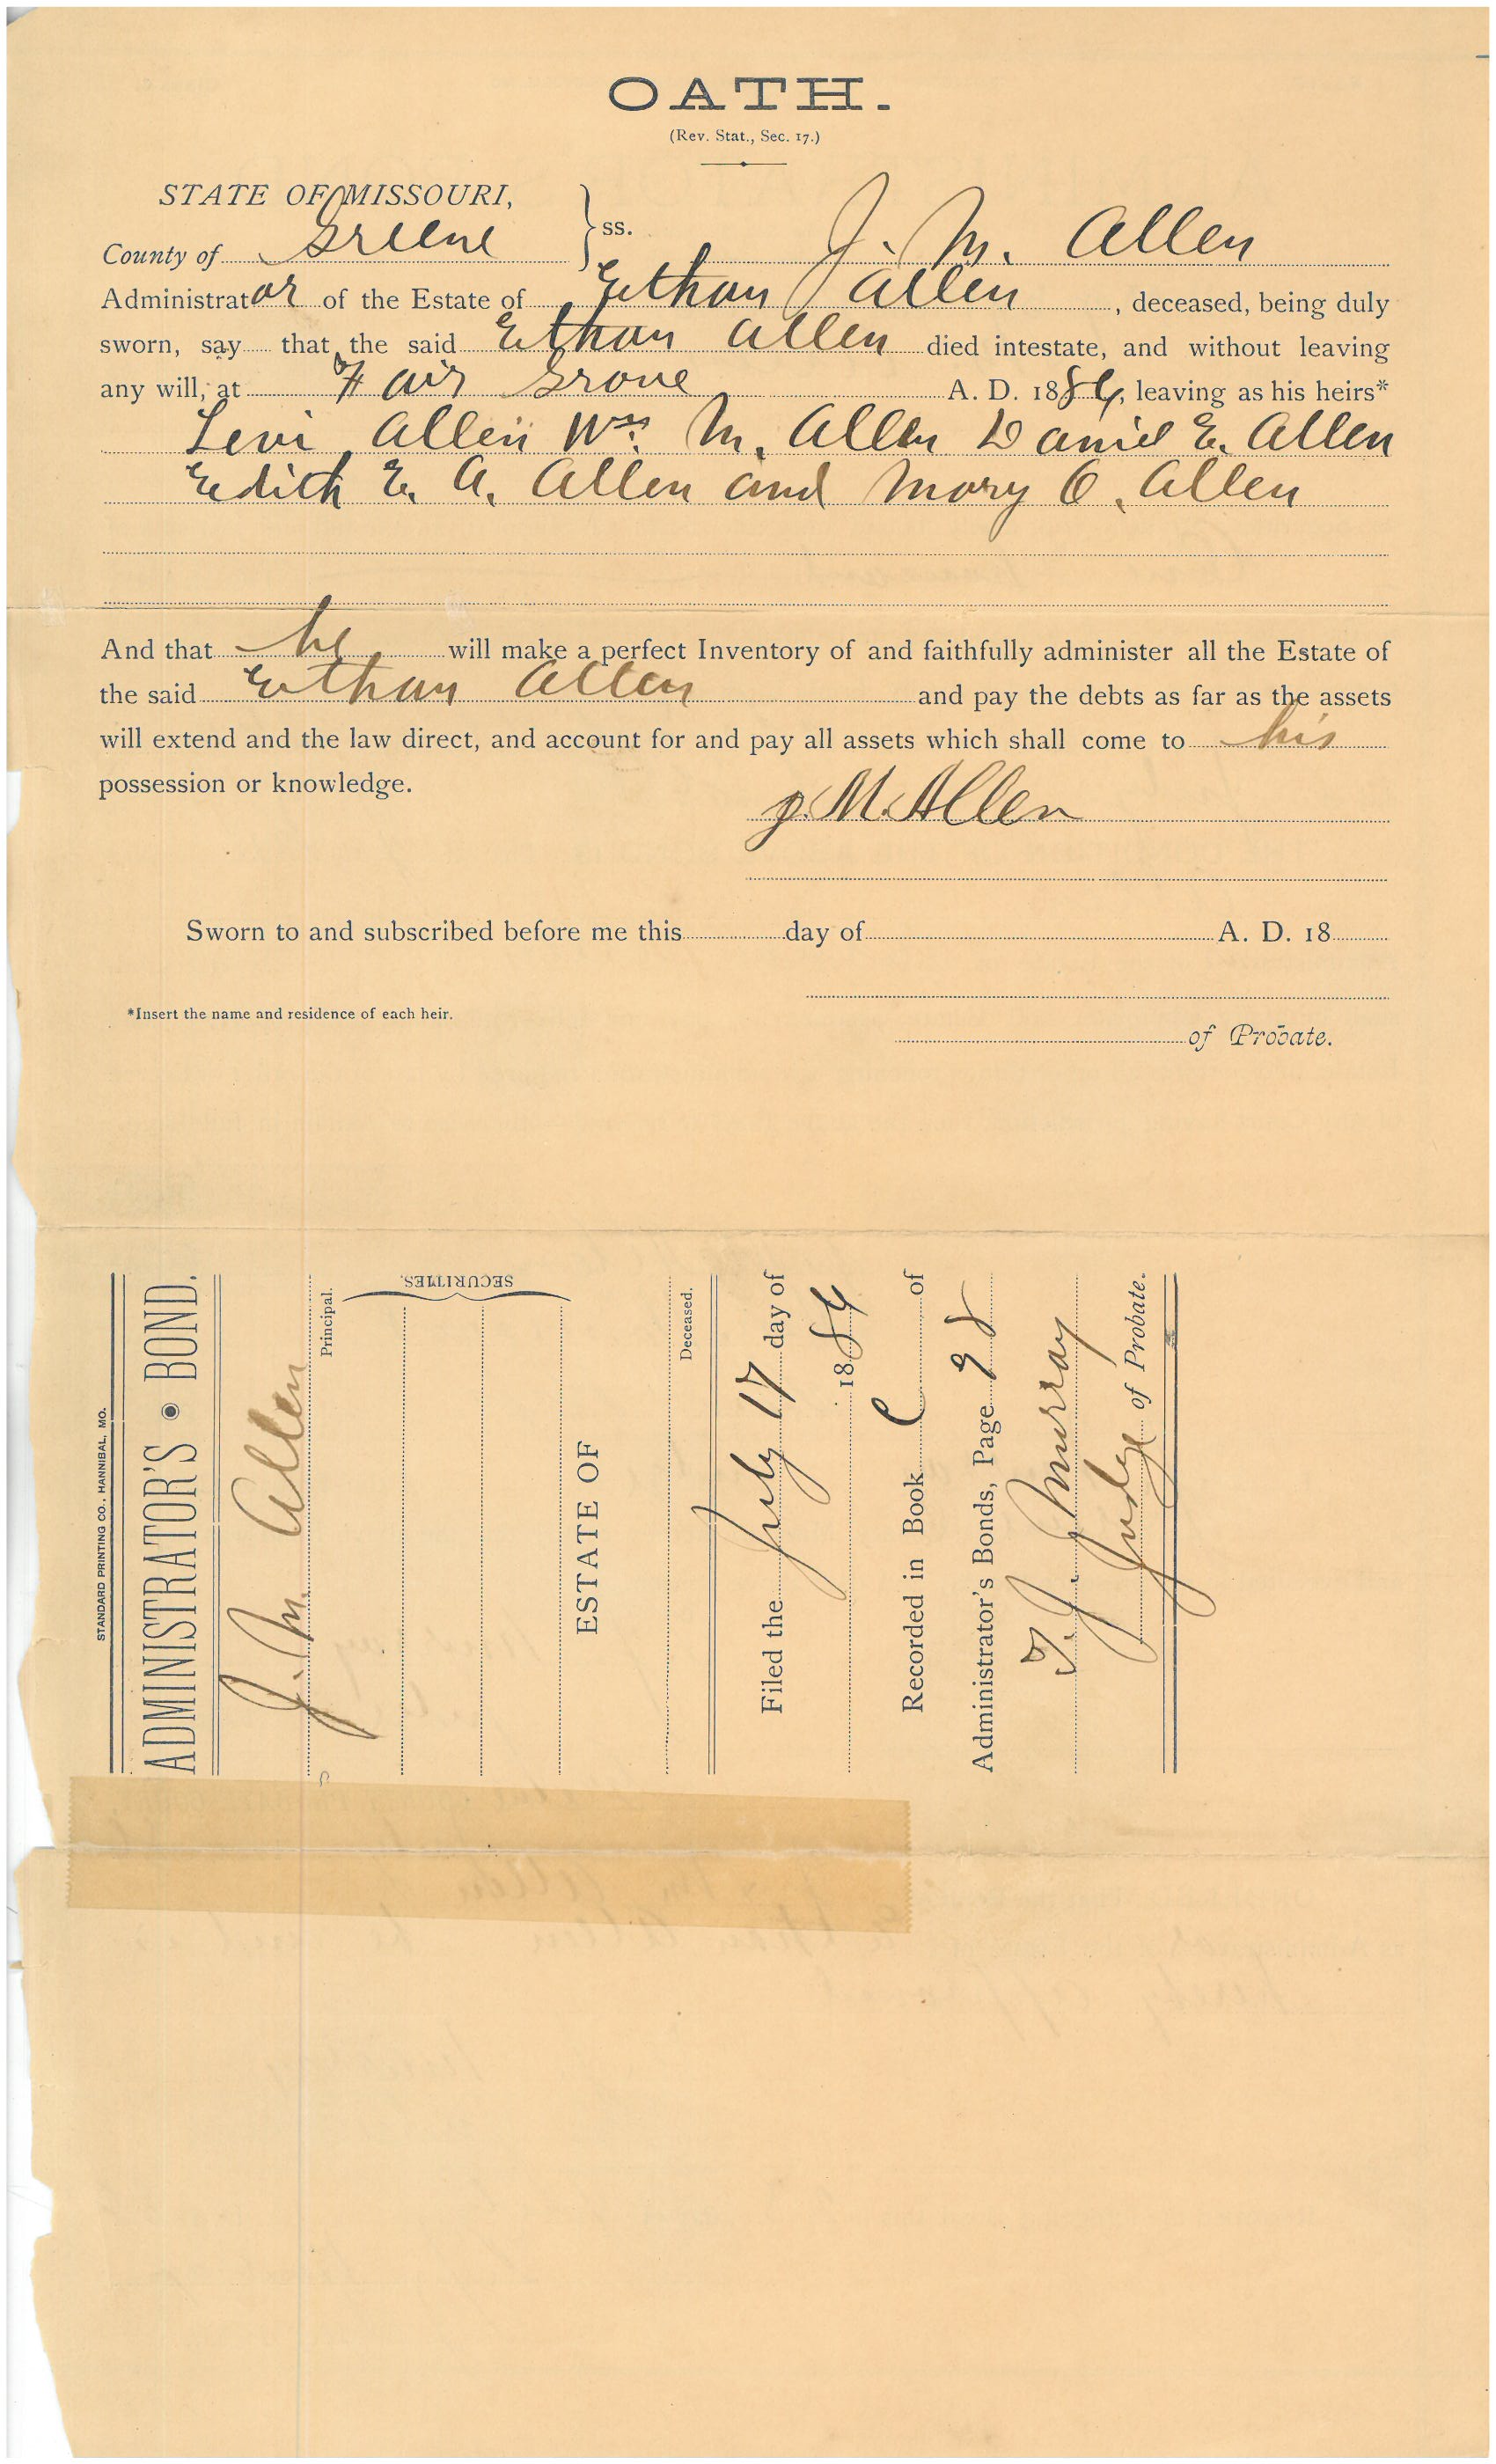 OATH.
(Rev. Stat., Sec. 17.)
STATE OF MISSOURI,
County of Greene } ss. J. M. Allen
Administrator of the Estate of Ethan Allen, deceased, being duly
sworn, say that the said Ethan Allen died intestate, and without leaving
any will, at Fair Grove A. D. 1884, leaving as his heirs*
Levi Allen Wm M. Allen Daniel E. Allen
Edith E. A. Allen and Mary O. Allen
And that he will make a perfect Inventory of and faithfully administer all the Estate of
the said Ethan Allen and pay the debts as far as the assets
will extend and the law direct, and account for and pay all assets which shall come to his
possession or knowledge.
J. M. Allen
Sworn to and subscribed before me this day of A. D. 18
*Insert the name and residence of each heir.
of Probate.
STANDARD PRINTING CO., HANNIBAL, MO.
ADMINISTRATOR'S BOND.
J. M. Allen
Principal.
SECURITIES.
ESTATE OF
Deceased.
Filed the July 17 day of
1884
Recorded in Book C of
Administrator's Bonds, Page 98
T. J. Murray
Judge of Probate.